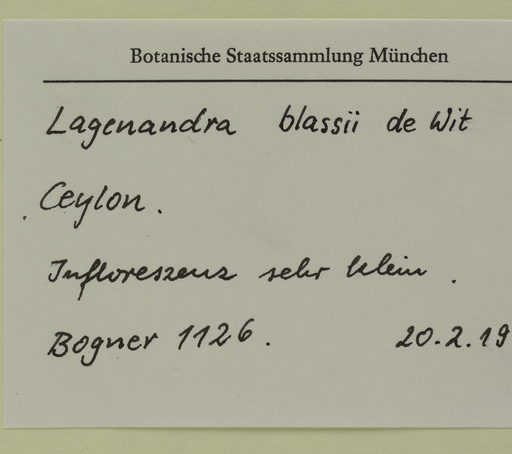 Botanische Staatssammlung München
Lagenandra blassii de Wit
Ceylon.
Infloreszenz sehr klein.
Bogner 1126. 20.2.19